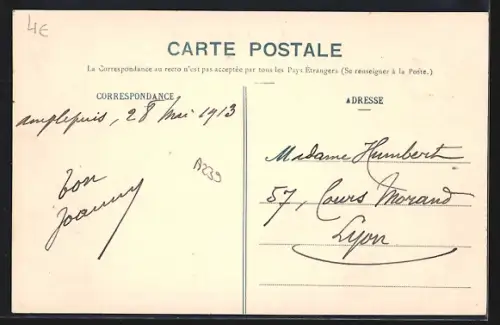 4€
CARTE POSTALE
La Correspondance au recto n'est pas acceptée par tous les Pays Étrangers (Se renseigner à la Poste.)
CORRESPONDANCE
Amplepuis, 28 Mai 1913
ton
Joanny
A239
ADRESSE
Madame Humbert
57, Cours Morand
Lyon